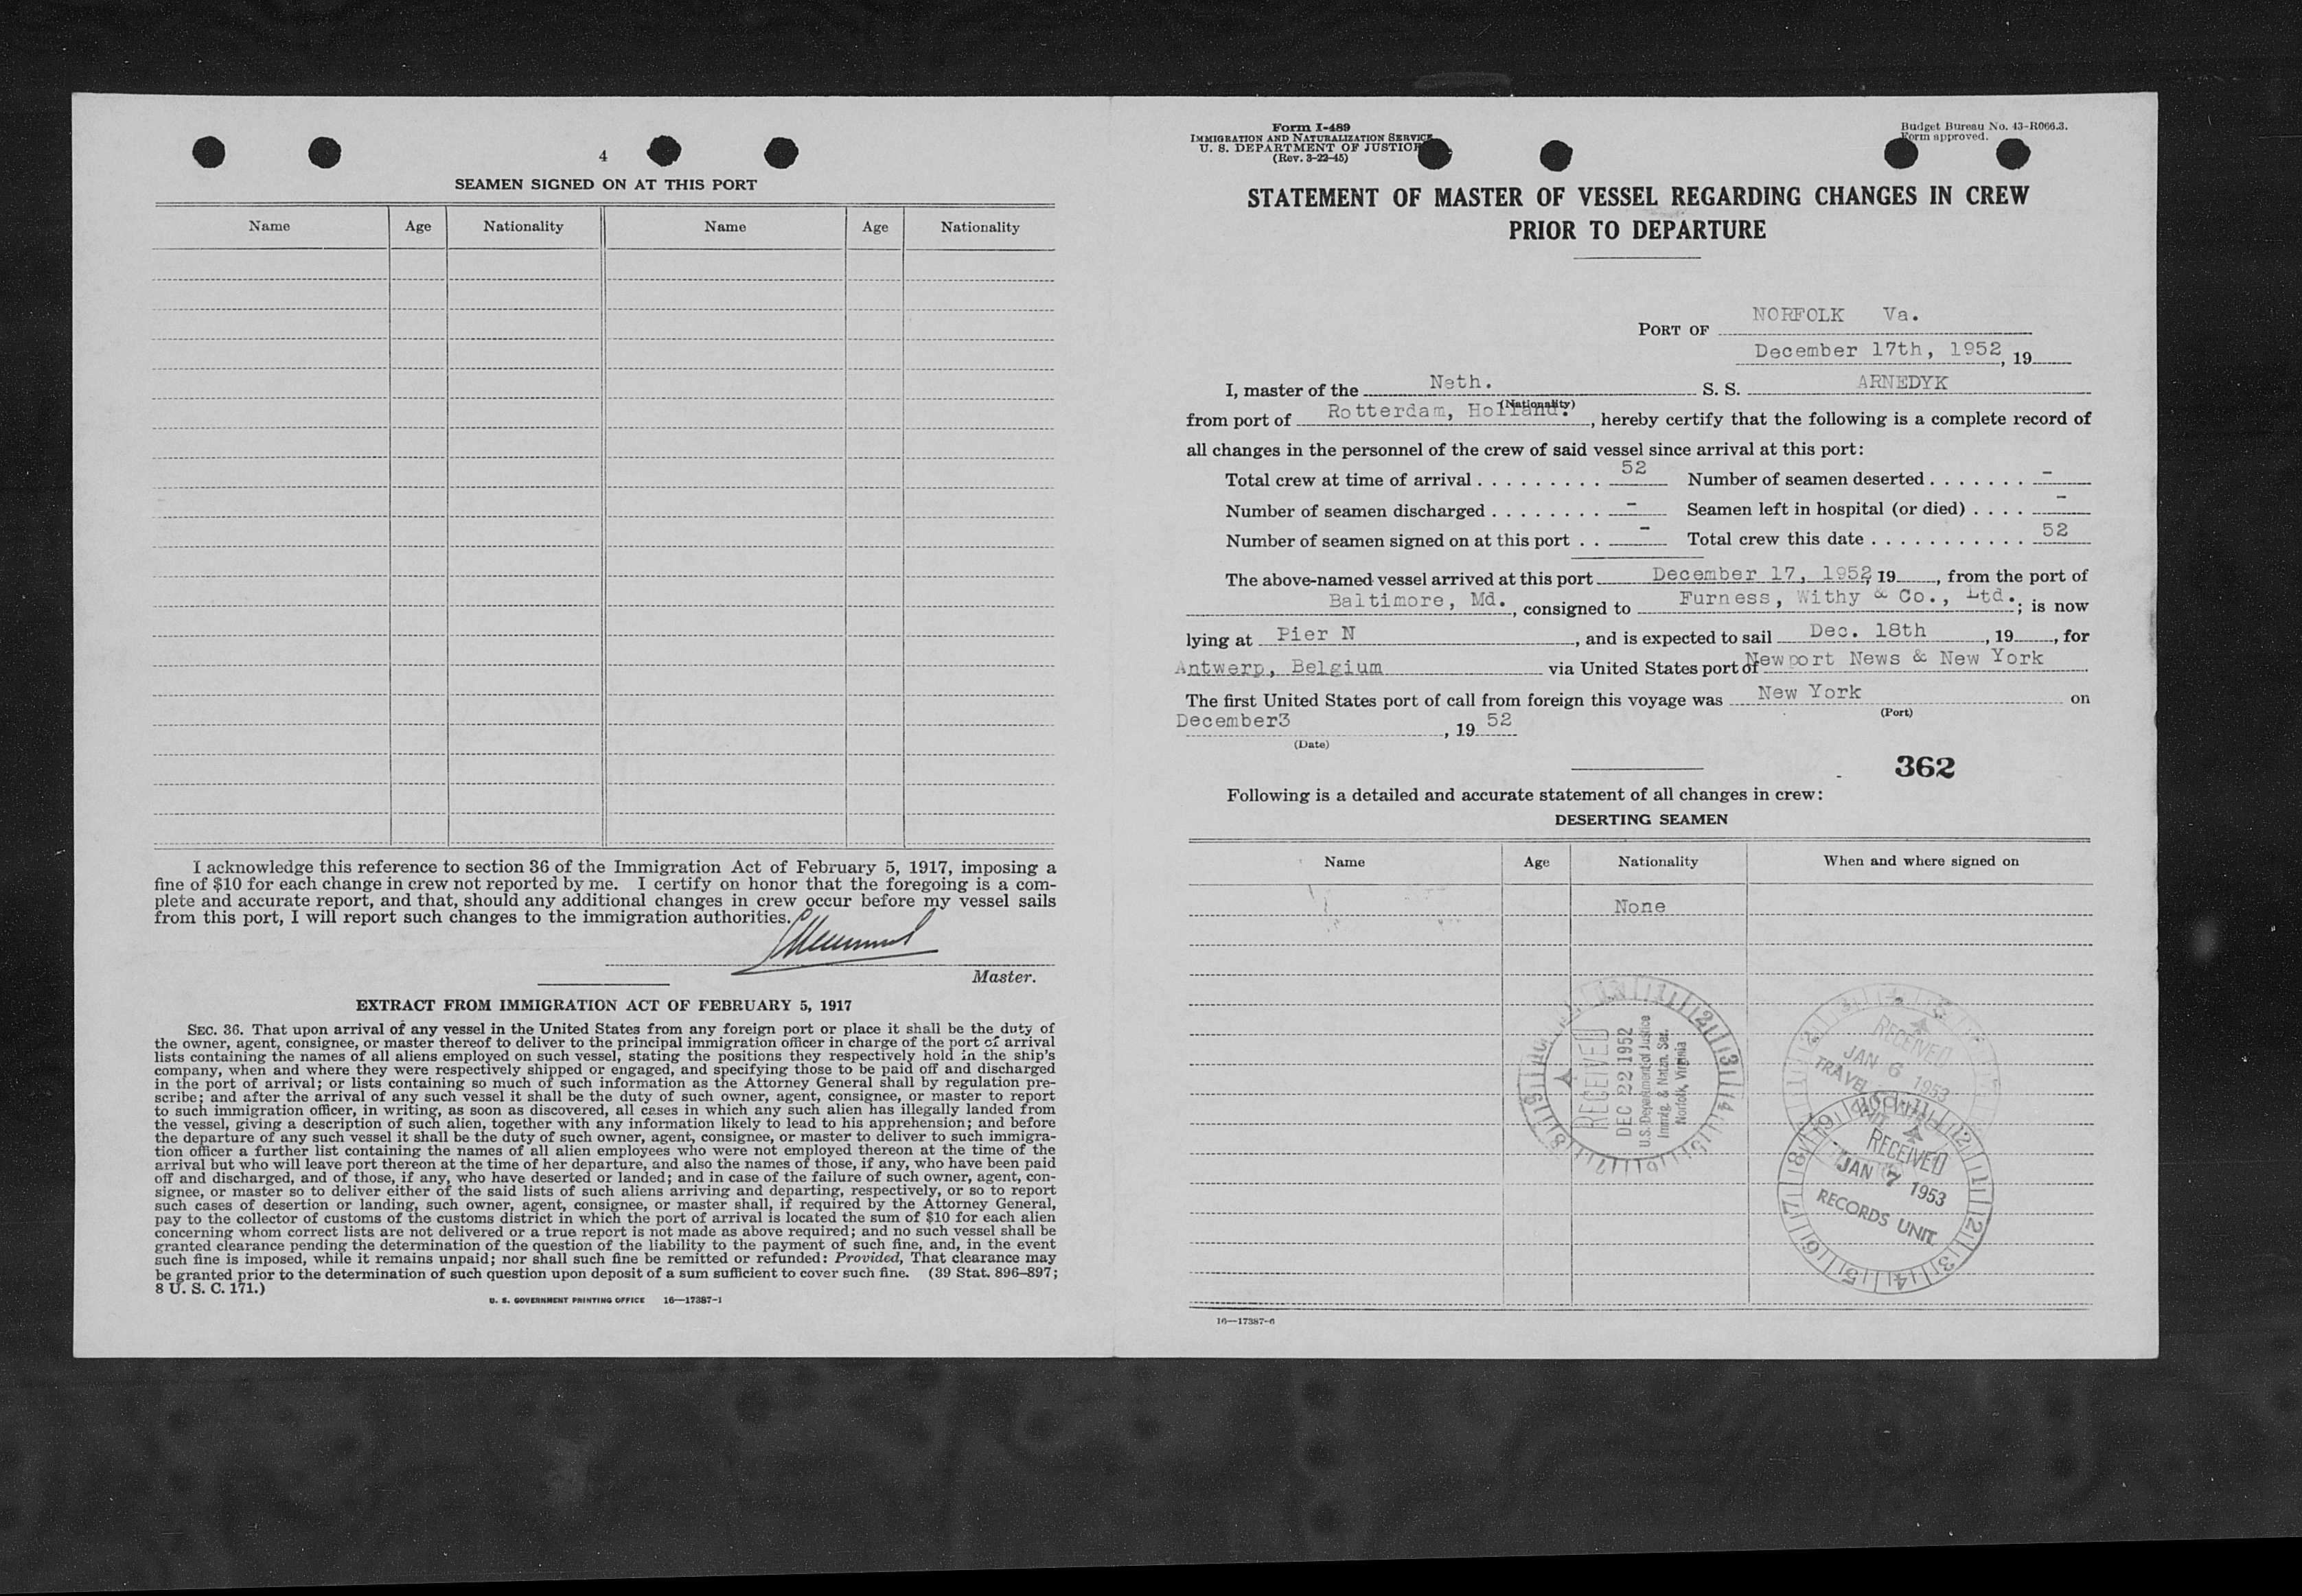 4
SEAMEN SIGNED ON AT THIS PORT
Name Age Nationality Name Age Nationality
I acknowledge this reference to section 36 of the Immigration Act of February 5, 1917, imposing a
fine of $10 for each change in crew not reported by me. I certify on honor that the foregoing is a com-
plete and accurate report, and that, should any additional changes in crew occur before my vessel sails
from this port, I will report such changes to the immigration authorities.
Master.
EXTRACT FROM IMMIGRATION ACT OF FEBRUARY 5, 1917
SEC. 36. That upon arrival of any vessel in the United States from any foreign port or place it shall be the duty of
the owner, agent, consignee, or master thereof to deliver to the principal immigration officer in charge of the port of arrival
lists containing the names of all aliens employed on such vessel, stating the positions they respectively hold in the ship's
company, when and where they were respectively shipped or engaged, and specifying those to be paid off and discharged
in the port of arrival; or lists containing so much of such information as the Attorney General shall by regulation pre-
scribe; and after the arrival of any such vessel it shall be the duty of such owner, agent, consignee, or master to report
to such immigration officer, in writing, as soon as discovered, all cases in which any such alien has illegally landed from
the vessel, giving a description of such alien, together with any information likely to lead to his apprehension; and before
the departure of any such vessel it shall be the duty of such owner, agent, consignee, or master to deliver to such immigra-
tion officer a further list containing the names of all alien employees who were not employed thereon at the time of the
arrival but who will leave port thereon at the time of her departure, and also the names of those, if any, who have been paid
off and discharged, and of those, if any, who have deserted or landed; and in case of the failure of such owner, agent, con-
signee, or master so to deliver either of the said lists of such aliens arriving and departing, respectively, or so to report
such cases of desertion or landing, such owner, agent, consignee, or master shall, if required by the Attorney General,
pay to the collector of customs of the customs district in which the port of arrival is located the sum of $10 for each alien
concerning whom correct lists are not delivered or a true report is not made as above required; and no such vessel shall be
granted clearance pending the determination of the question of the liability to the payment of such fine, and, in the event
such fine is imposed, while it remains unpaid; nor shall such fine be remitted or refunded: Provided, That clearance may
be granted prior to the determination of such question upon deposit of a sum sufficient to cover such fine. (39 Stat. 896–897;
8 U. S. C. 171.)
U. S. GOVERNMENT PRINTING OFFICE 16—17387-1
Form I-489
IMMIGRATION AND NATURALIZATION SERVICE
U. S. DEPARTMENT OF JUSTICE
(Rev. 3-22-45)
Budget Bureau No. 43-R066.3.
Form approved.
STATEMENT OF MASTER OF VESSEL REGARDING CHANGES IN CREW
PRIOR TO DEPARTURE
PORT OF NORFOLK Va.
December 17th, 1952, 19
I, master of the Neth. S. S. ARNEDYK
(Nationality)
from port of Rotterdam, Holland., hereby certify that the following is a complete record of
all changes in the personnel of the crew of said vessel since arrival at this port:
Total crew at time of arrival . . . . . . . . . 52 Number of seamen deserted . . . . . . . -
Number of seamen discharged . . . . . . . . - Seamen left in hospital (or died) . . . . -
Number of seamen signed on at this port . . - Total crew this date . . . . . . . . . . . 52
The above-named vessel arrived at this port December 17, 1952, 19, from the port of
Baltimore, Md., consigned to Furness, Withy & Co., Ltd.; is now
lying at Pier N, and is expected to sail Dec. 18th, 19, for
Antwerp, Belgium via United States port of Newport News & New York
The first United States port of call from foreign this voyage was New York on
(Port)
December3, 19 52
(Date)
362
Following is a detailed and accurate statement of all changes in crew:
DESERTING SEAMEN
Name Age Nationality When and where signed on
None
RECEIVED
DEC 22 1952
U.S. Department of Justice
Immig. & Natzn. Ser.
Norfolk, Virginia
RECEIVED
JAN 6 1953
TRAVEL
RECEIVED
JAN 7 1953
RECORDS UNIT
16—17387-6